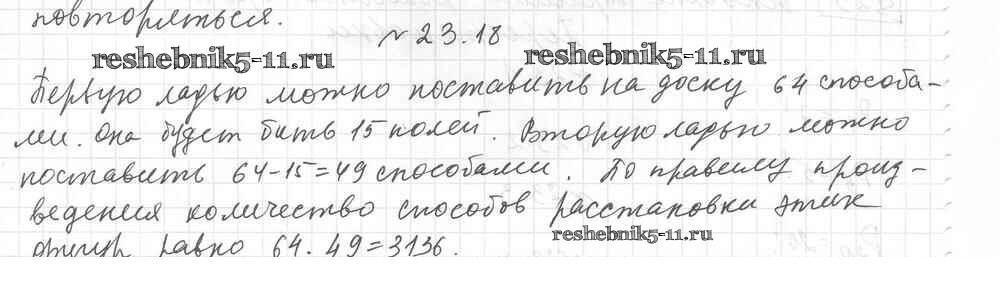 повторяться.
№ 23.18
reshebnik5-11.ru reshebnik5-11.ru
Первую ладью можно поставить на доску 64 способа-
ми. Она будет бить 15 полей. Вторую ладью можно
поставить 64-15=49 способами. По правилу произ-
ведения количество способов расстановки этих
reshebnik5-11.ru
фигур равно 64·49=3136.